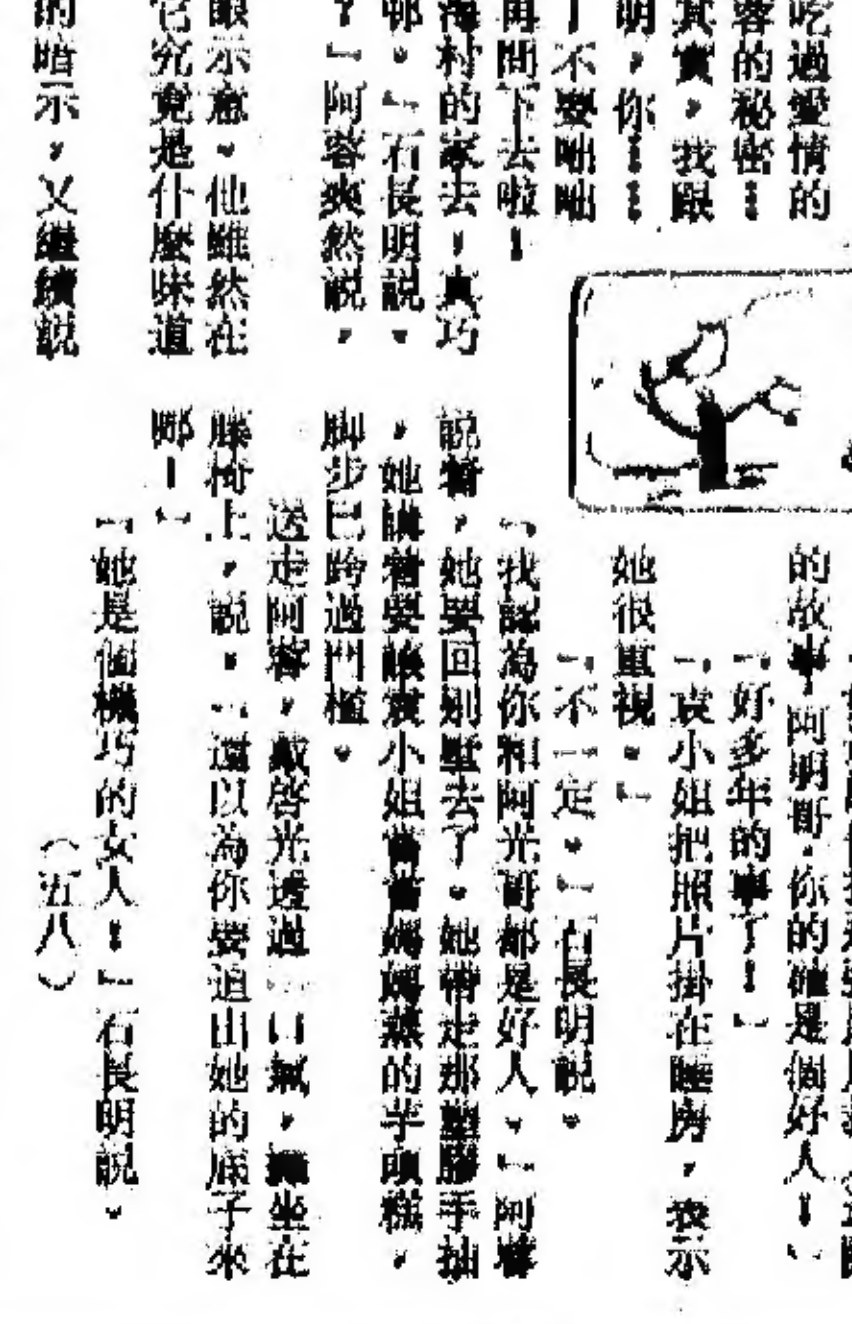 吃過愛情的
蓉的秘密！
其實，我跟
明，你！！
了不要咄咄
再問下去啦！
村的家去！真巧
。」石長明説。
？』阿蓉爽然説，
眼示意。他雖然在
它究竟是什麼味道
的暗示，又繼續説
的故事，阿明哥，你的確是個好人！」
「好多年的事了！」
「袁小姐把照片掛在睡房，表示
她很重視。」
「不一定。」石長明説。
「我認為你和阿光哥都是好人。」阿蓉
説着，她要回別墅去了。她帶走那塑膠手抽
，她講着要讓袁小姐嘗嘗媽媽蒸的芋頭糕，
脚步已跨過門檻。
送走阿蓉，戴啓光透過一口氣，坐在
籐椅上，説：「還以為你要迫出她的底子來
哪！」
「她是個機巧的女人！」石長明説。
（五八）